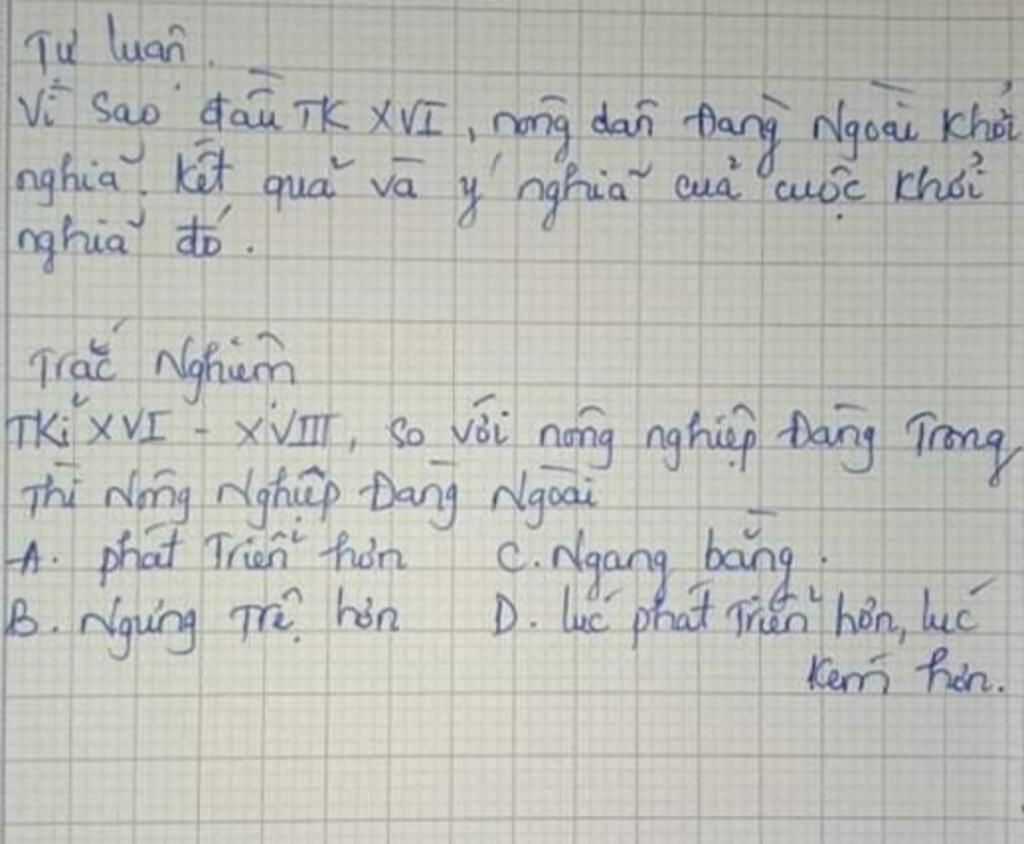 Tự luận.
Vì sao đầu TK XVI, nông dân Đàng Ngoài khởi
nghĩa. Kết quả và ý nghĩa của cuộc khởi
nghĩa đó.
Trắc Nghiệm
TKỉ XVI - XVIII, so với nông nghiệp Đàng Trong
Thì Nông Nghiệp Đàng Ngoài
A. phát Triển hơn C. Ngang bằng.
B. Ngừng Trệ hơn D. lúc phát Triển hơn, lúc
kém hơn.